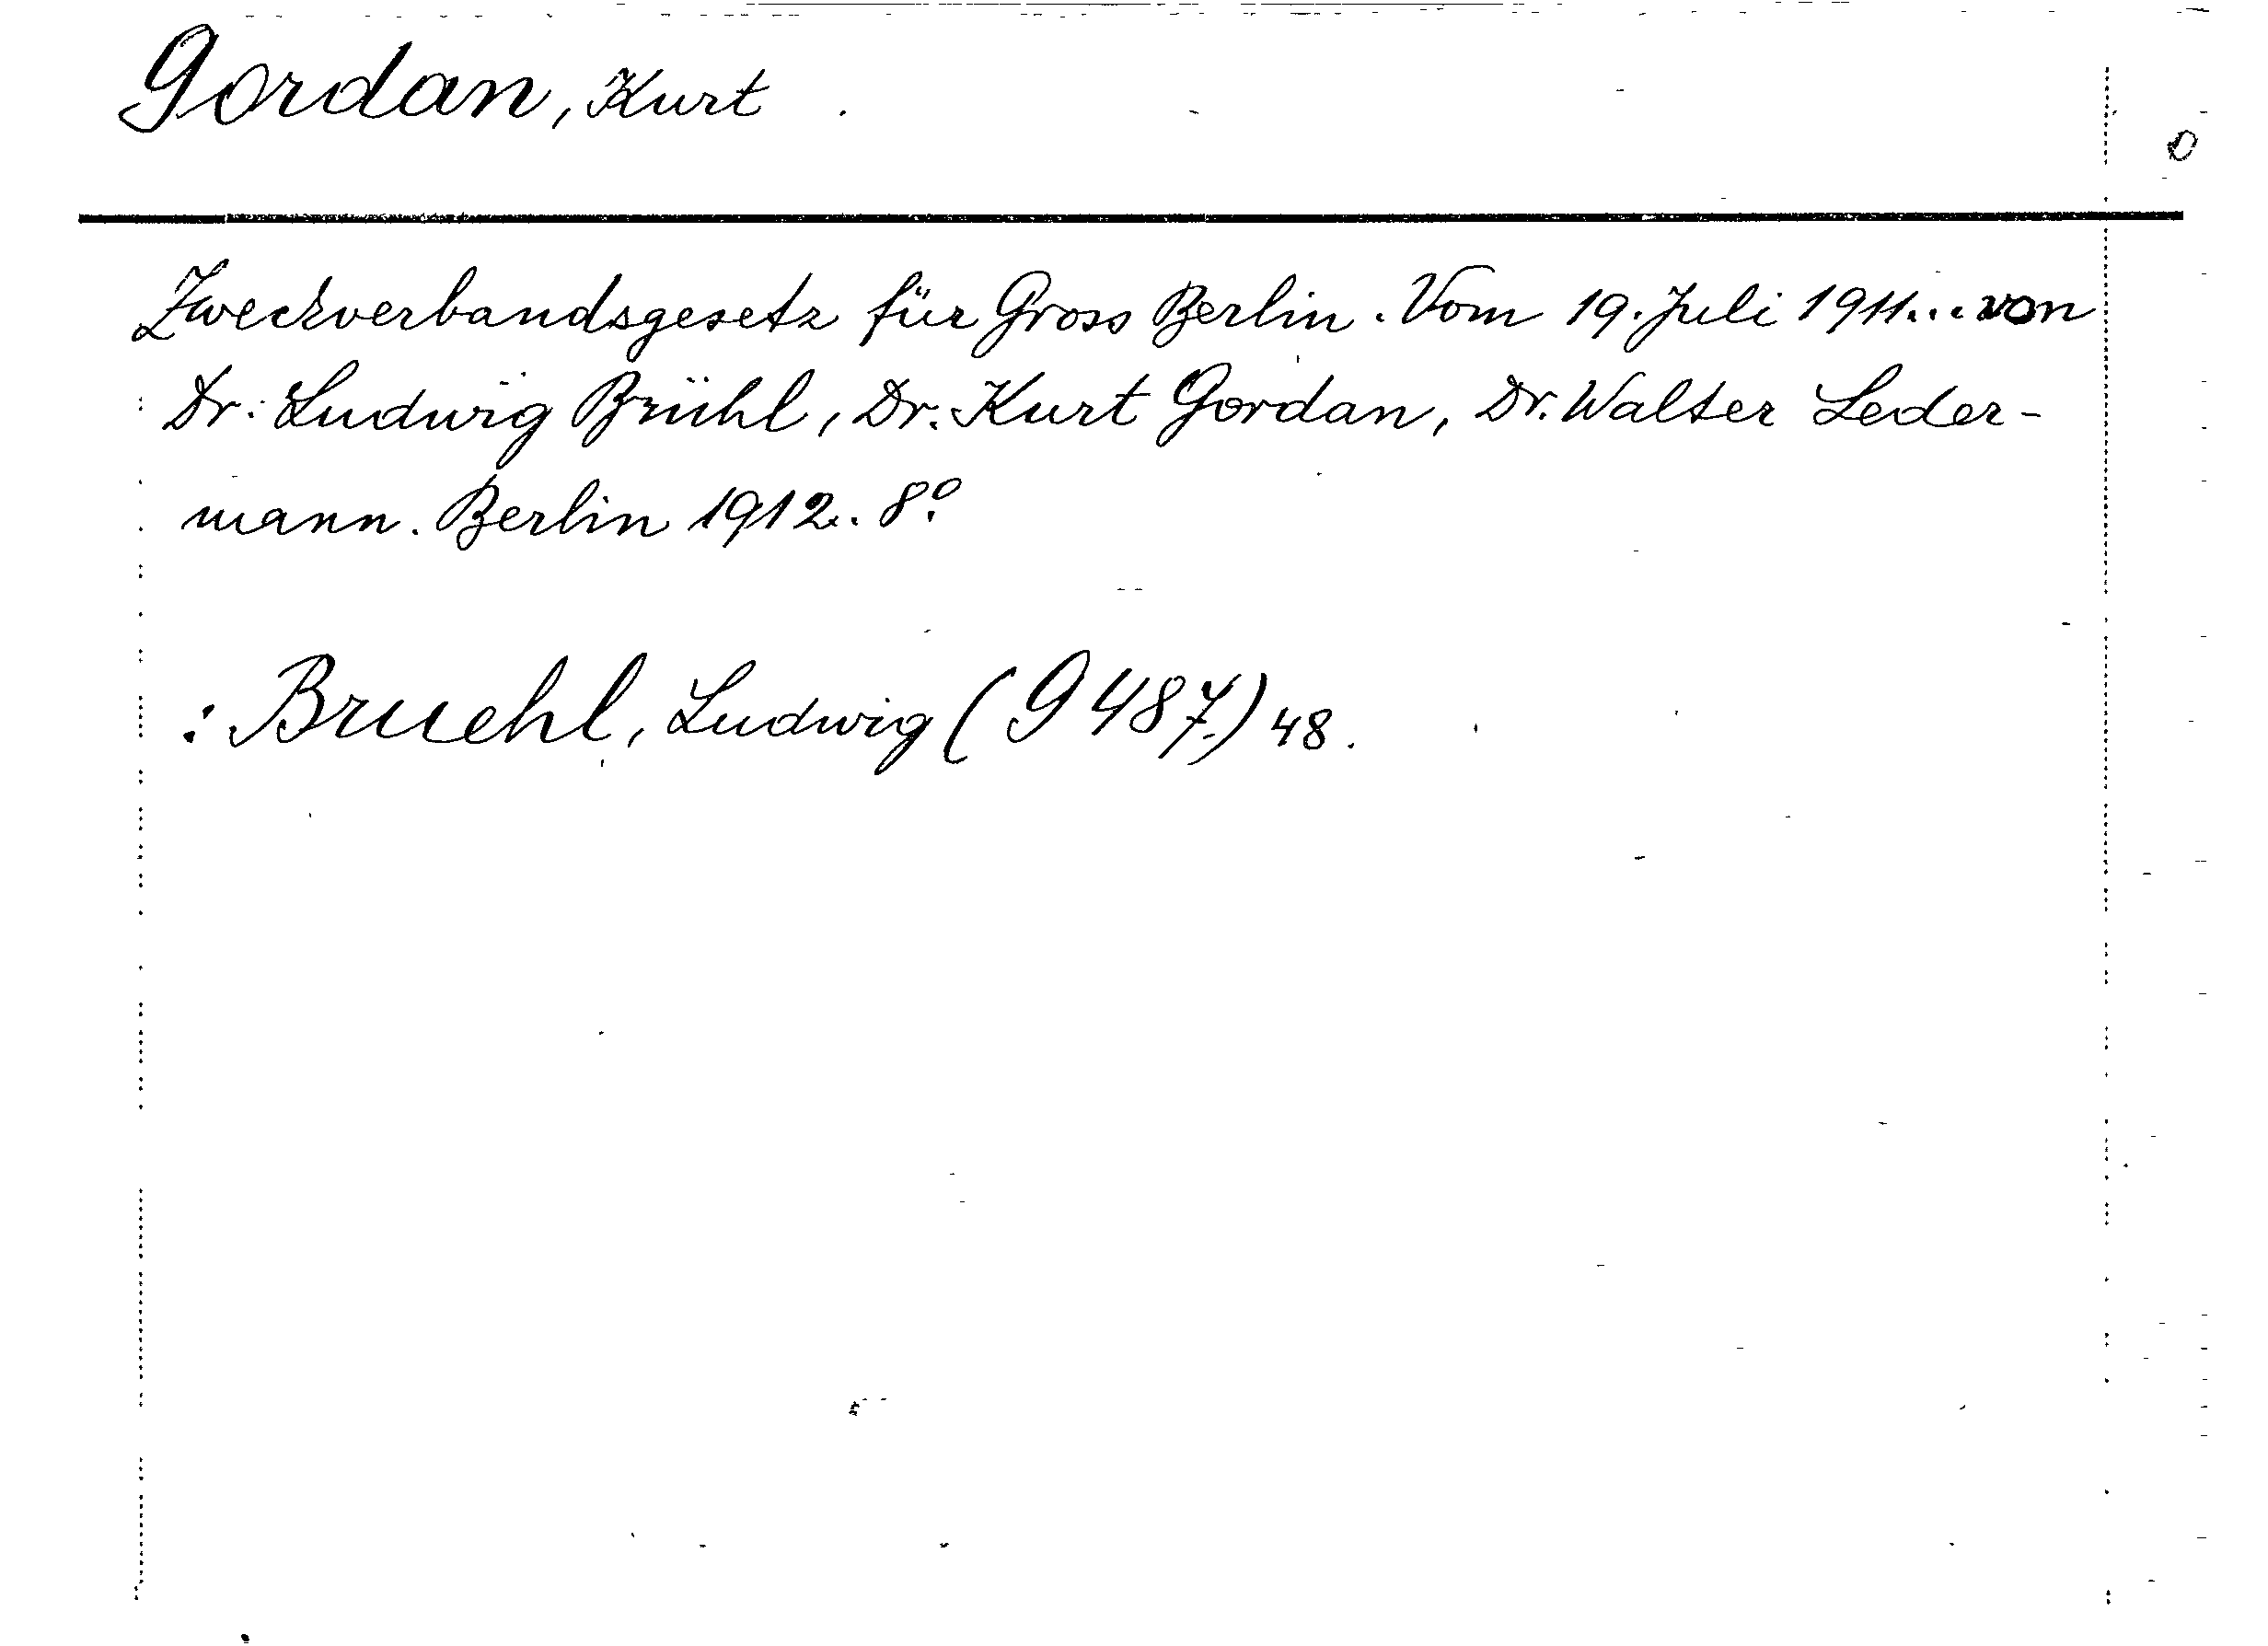 Gordan, Kurt
Zweckverbandsgesetz für Gross Berlin. Vom 19. Juli 1911... von
Dr. Ludwig Brühl, Dr. Kurt Gordan, Dr. Walter Leder-
mann. Berlin 1912. 8°.
: Bruehl, Ludwig (9487) 48.